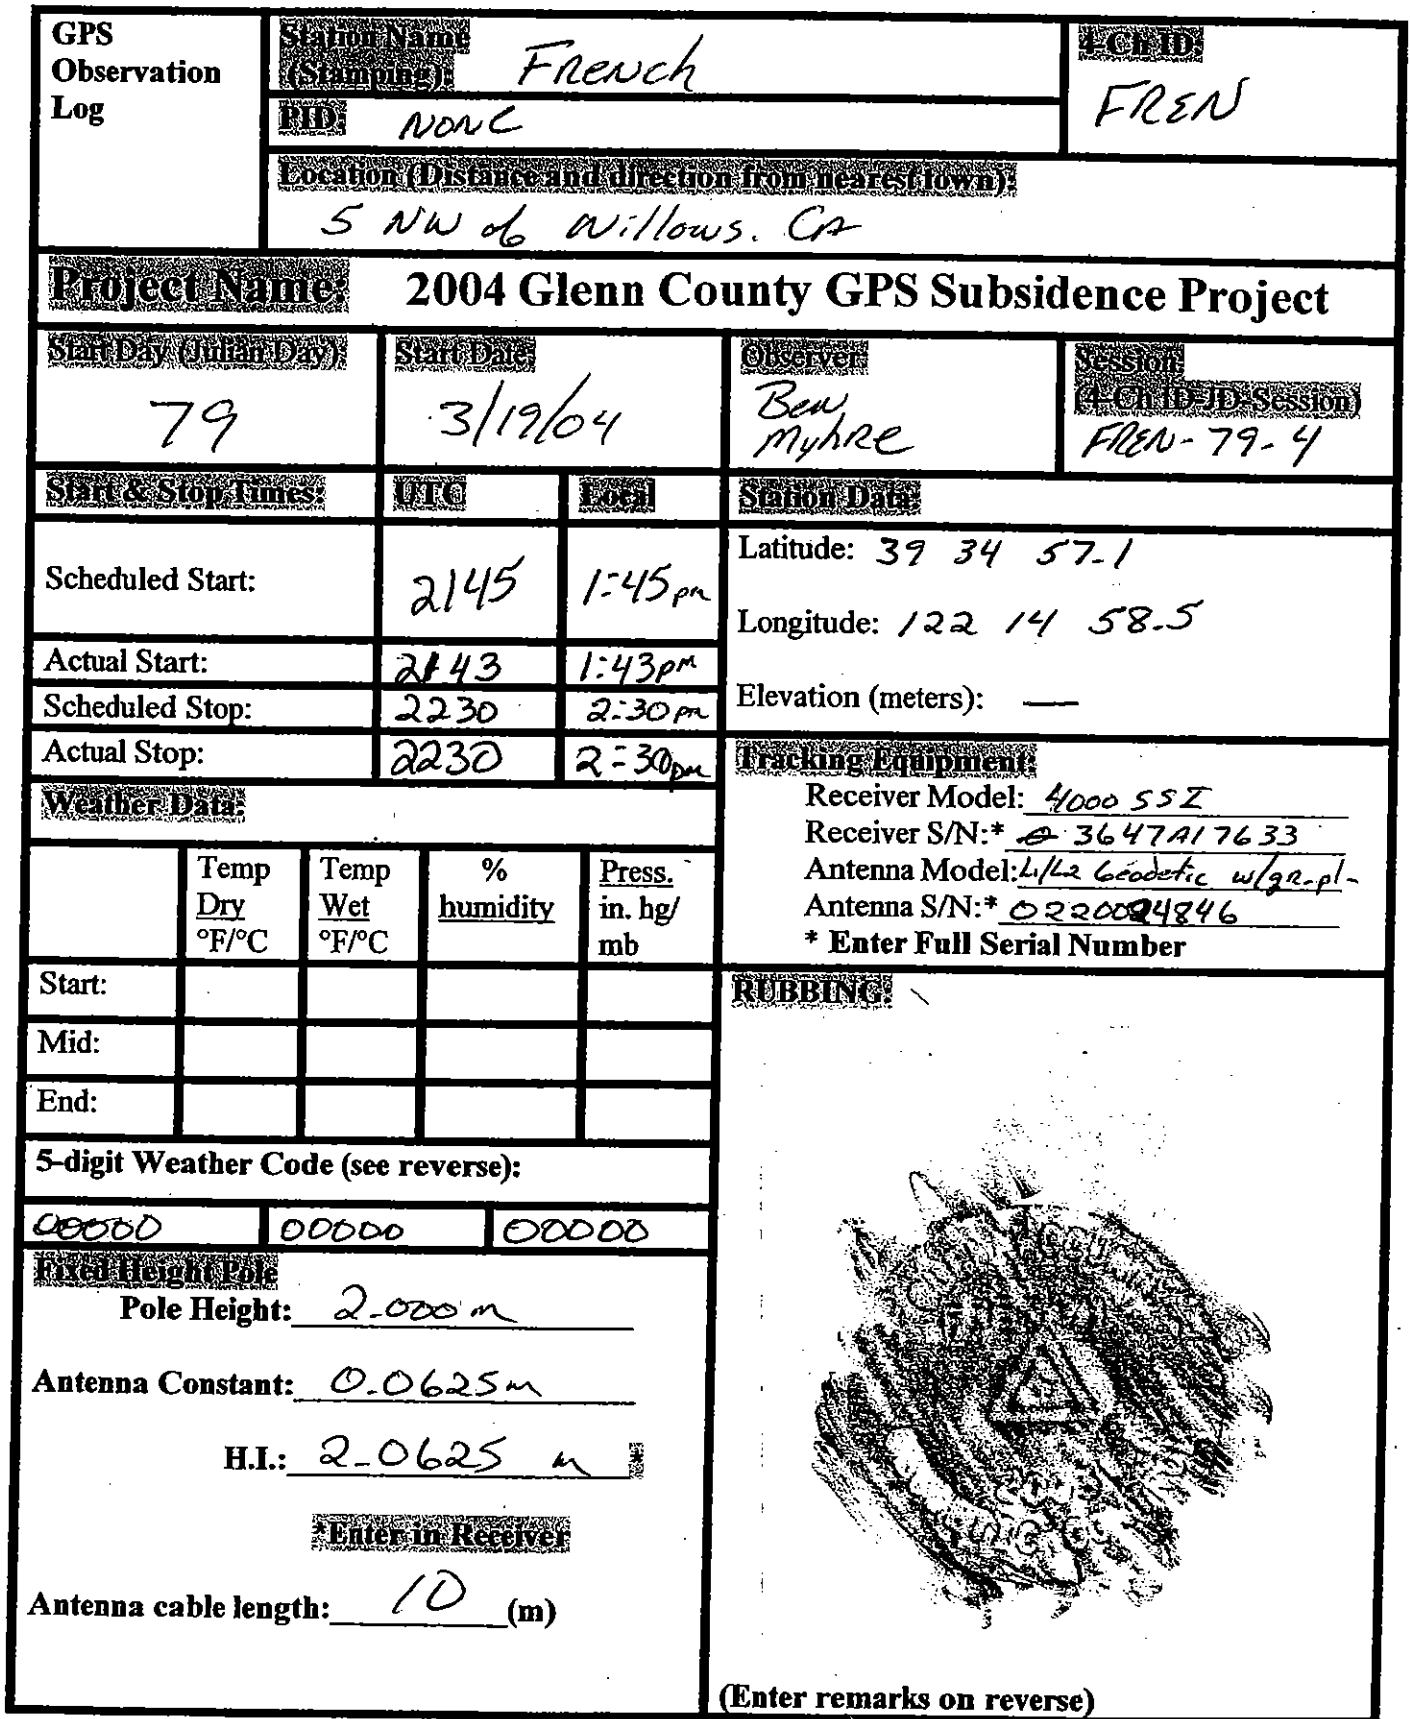 GPS
Observation
Log
Station Name
(Stamping): French
4-Ch ID:
FREN
PID: NONE
Location (Distance and direction from nearest town):
5 NW of Willows. CA
Project Name: 2004 Glenn County GPS Subsidence Project
Start Day (Julian Day):
79
Start Date:
3/19/04
Observer:
Ben
Myhre
Session:
(4-Ch ID-JD-Session)
FREN-79-4
Start & Stop Times: UTC Local
Scheduled Start: 2145 1:45 pm
Actual Start: 2143 1:43pm
Scheduled Stop: 2230 2:30 pm
Actual Stop: 2230 2:30pm
Station Data:
Latitude: 39 34 57.1
Longitude: 122 14 58.5
Elevation (meters): —
Tracking Equipment:
Receiver Model: 4000 SSI
Receiver S/N:* 3647A17633
Antenna Model: L1/L2 Geodetic w/gr.pl.
Antenna S/N:* 0220094846
* Enter Full Serial Number
Weather Data:
Temp
Dry
°F/°C
Temp
Wet
°F/°C
%
humidity
Press.
in. hg/
mb
Start:
Mid:
End:
5-digit Weather Code (see reverse):
00000 00000 00000
Fixed Height Pole
Pole Height: 2.000 m
Antenna Constant: 0.0625m
H.I.: 2.0625 m *
*Enter in Receiver
Antenna cable length: 10 (m)
RUBBING:
(Enter remarks on reverse)